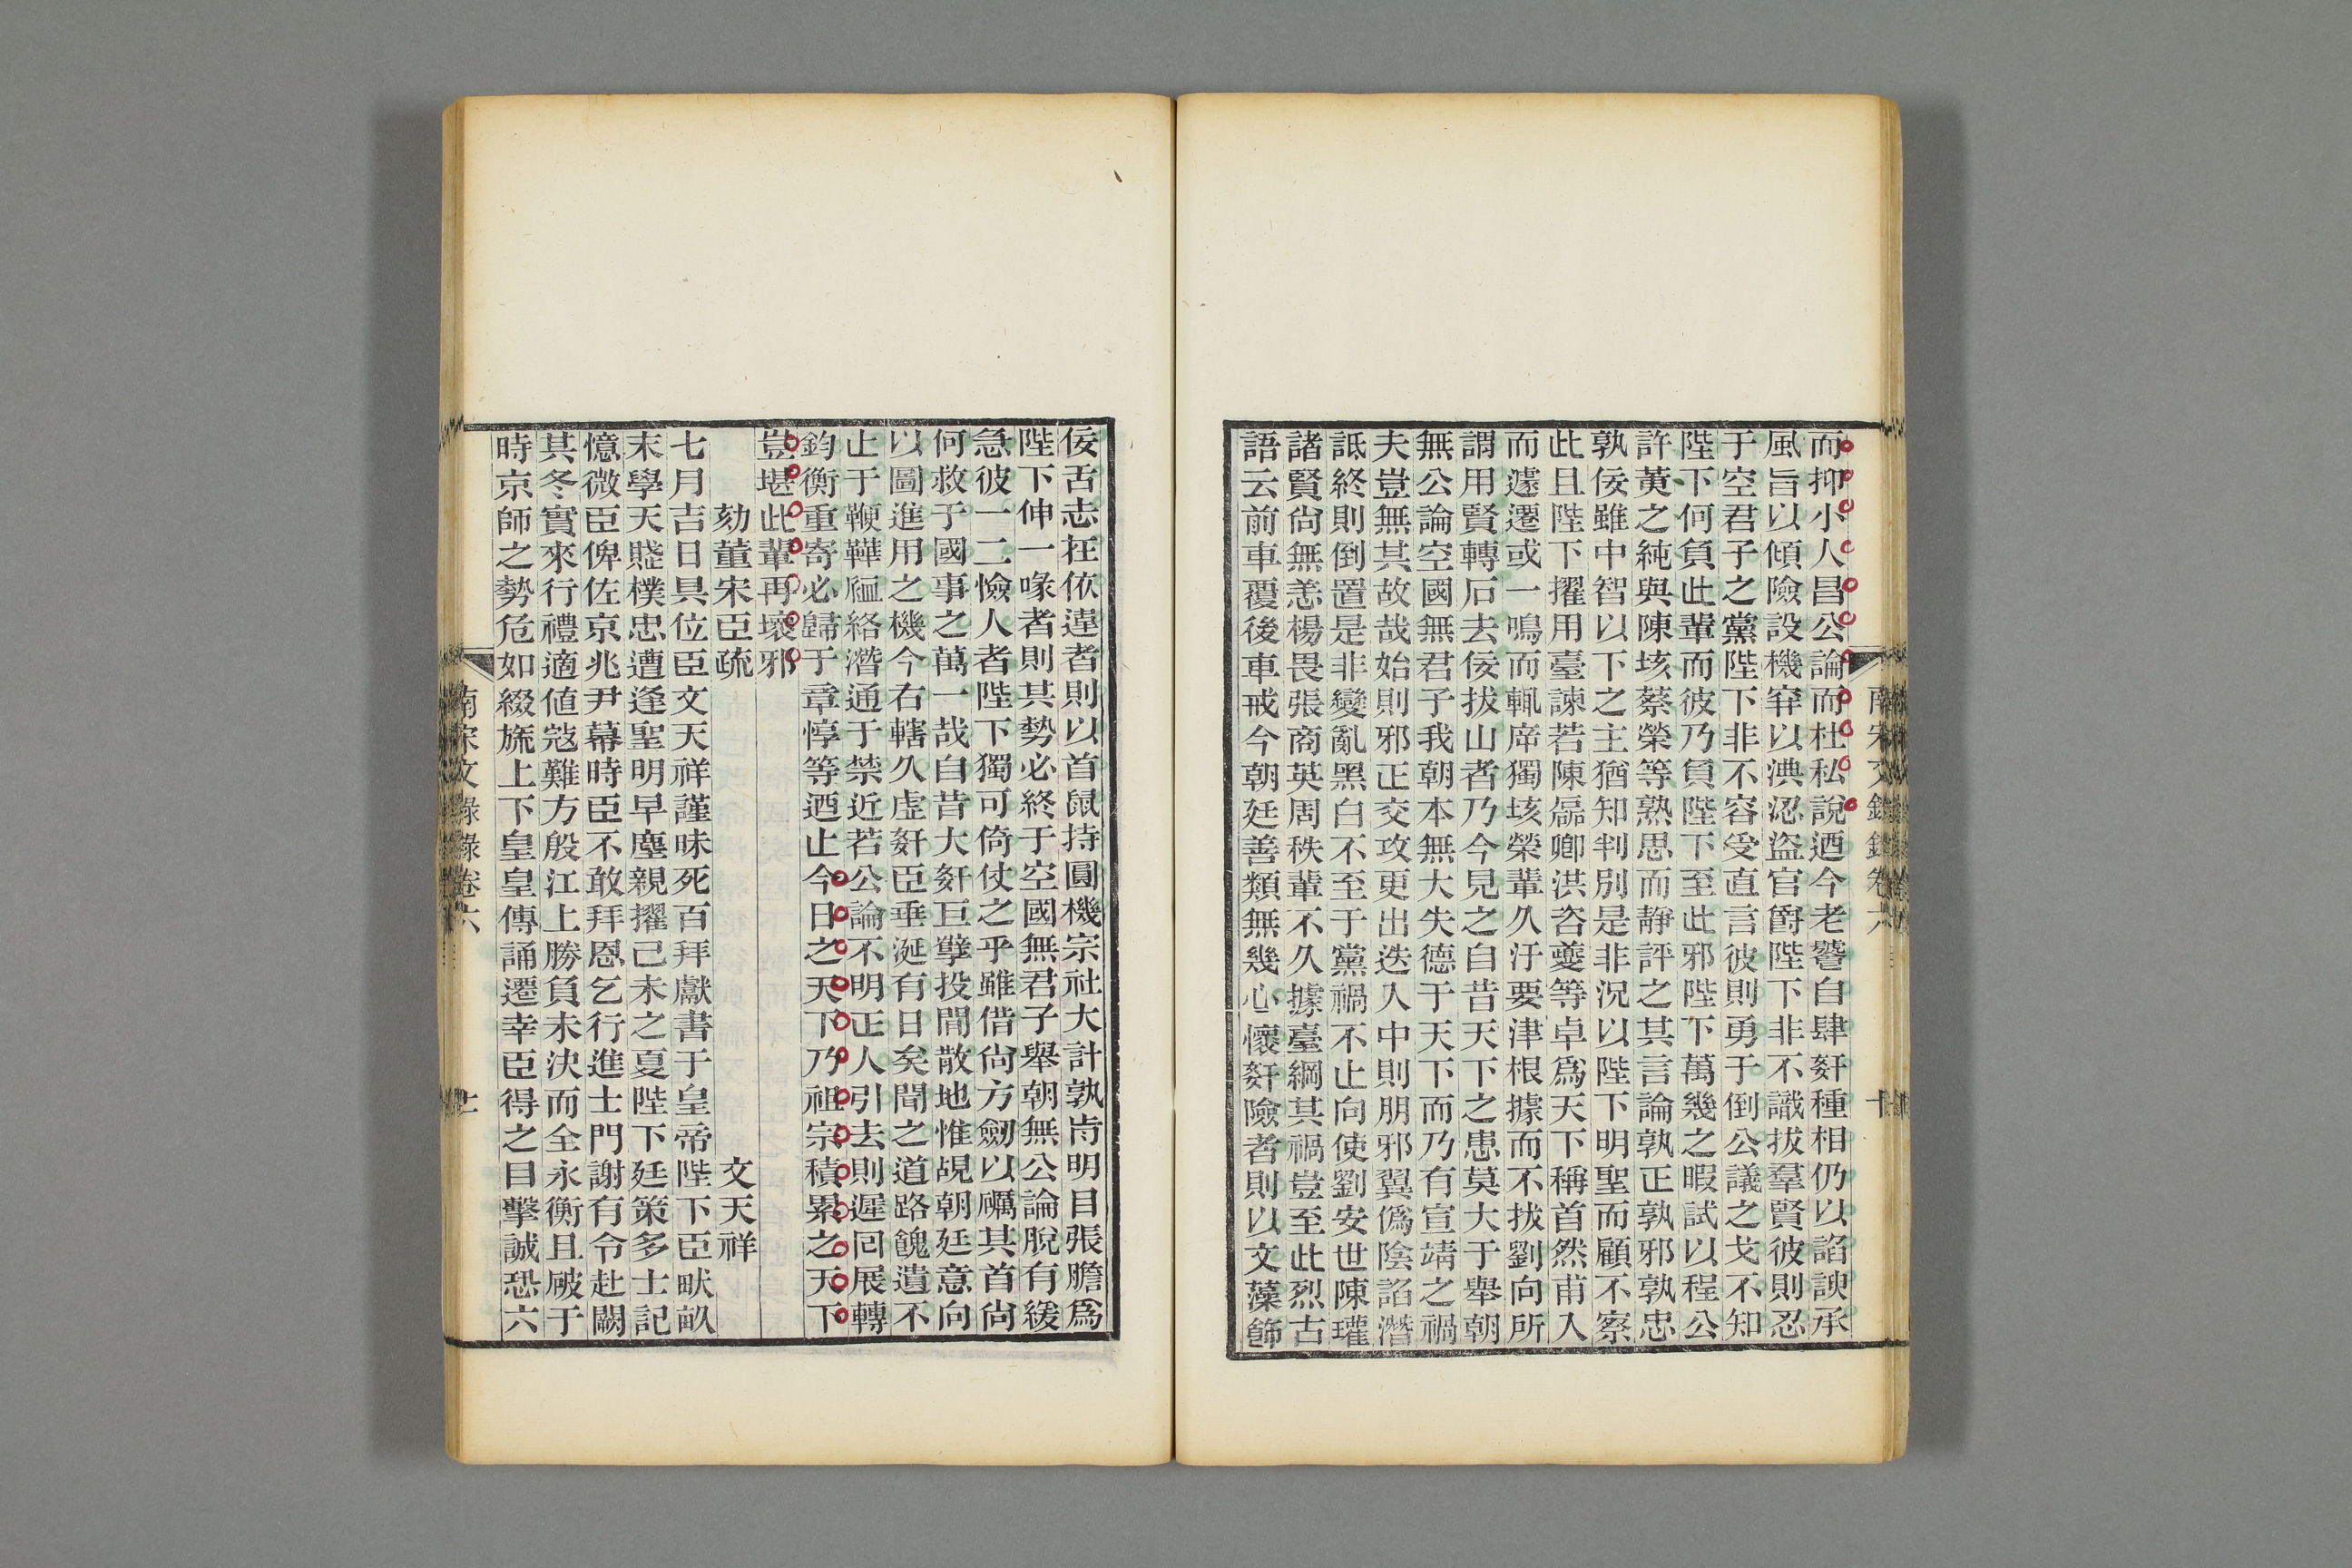 而抑小人昌公論而杜私說迺今老㽆自肆姧種相仍以諂諛承
風旨以傾險設機穽以淟涊盜官爵陛下非不識拔羣賢彼則忍
于空君子之黨陛下非不容受直言彼則勇于倒公議之戈不知
陛下何負此輩而彼乃負陛下至此邪陛下萬幾之暇試以程公
許黃之純與陳垓蔡榮等熟思而靜評之其言論孰正孰邪孰忠
孰佞雖中智以下之主猶知判別是非況以陛下明聖而顧不察
此且陛下擢用臺諫若陳磊卿洪咨夔等卓爲天下稱首然甫入
而遽遷或一鳴而輒庠獨垓榮輩久汙要津根據而不拔劉向所
謂用賢轉石去佞拔山者乃今見之自昔天下之患莫大于舉朝
無公論空國無君子我朝本無大失德于天下而乃有宣靖之禍
夫豈無其故哉始則邪正交攻更出迭入中則朋邪翼僞陰諂潛
詆終則倒置是非變亂黑白不至于黨禍不止向使劉安世陳瓘
諸賢尙無恙楊畏張商英周秩輩不久據臺綱其禍豈至此烈古
語云前車覆後車戒今朝廷善類無幾心懷姧險者則以文藻飾
南宋文錄錄卷六
十
佞舌志在依違者則以首鼠持圓機宗社大計孰肯明目張膽爲
陛下伸一喙者則其勢必終于空國無君子舉朝無公論脫有緩
急彼一二憸人者陛下獨可倚仗之乎雖借尙方劒以礪其首尙
何救于國事之萬一哉自昔大姧巨孽投閒散地惟覘朝廷意向
以圖進用之機今右轄久虛姧臣垂涎有日矣聞之道路餽遺不
止于鞭鞾脈絡潛通于禁近若公論不明正人引去則遲回展轉
鈞衡重寄必歸于章惇等迺止今日之天下乃祖宗積累之天下
豈堪此輩再壞邪
劾董宋臣疏 文天祥
七月吉日具位臣文天祥謹昧死百拜獻書于皇帝陛下臣畎畝
末學天賤樸忠遭逢聖明早塵親擢己未之夏陛下廷策多士記
憶微臣俾佐京兆尹幕時臣不敢拜恩乞行進士門謝有令赴闕
其冬實來行禮適値寇難方殷江上勝負未決而全永衡且破于
時京師之勢危如綴旒上下皇皇傳誦遷幸臣得之目擊誠恐六
南宋文錄錄卷六
十一